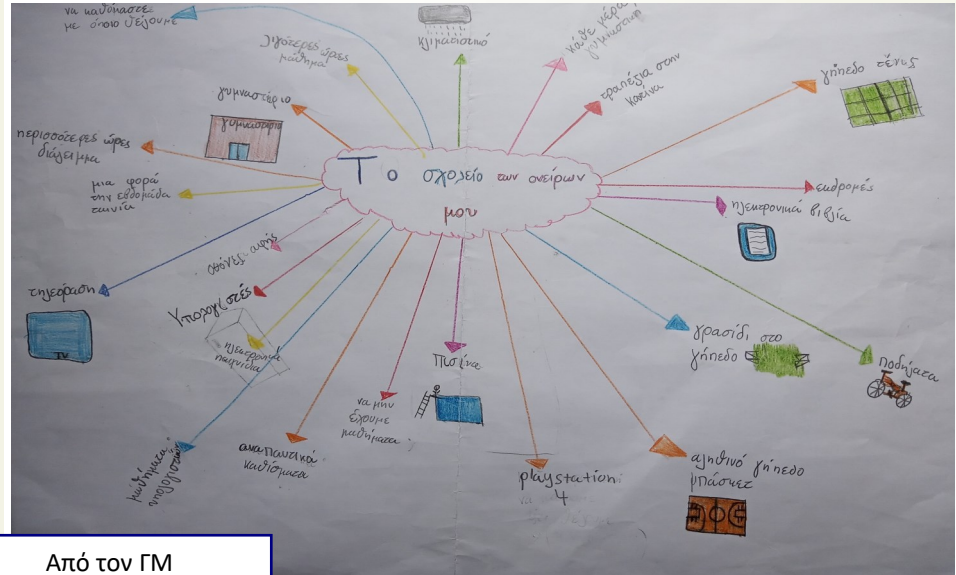 να καθόμαστε
με όποιο θέλουμε
λιγότερες ώρες
μάθημα
κλιματιστικό
κάθε μέρα
γυμναστική
τραπέζια στην
καντίνα
γήπεδο τένις
γυμναστήριο
γυμναστήριο
περισσότερες ώρες
διάλειμμα
μια φορά
την εβδομάδα
ταινία
Το σχολείο των ονείρων
μου
εκδρομές
ηλεκτρονικά βιβλία
οθόνες αφής
τηλεόραση
TV
Υπολογιστές
ηλεκτρονικά
παιχνίδια
Πισίνα
γρασίδι στο
γήπεδο
Ποδήλατα
να μην
έχουμε
μαθήματα
αναπαυτικά
καθίσματα
μαθήματα
υπολογιστών
playstation
4
αληθινό γήπεδο
μπάσκετ
Από τον ΓΜ